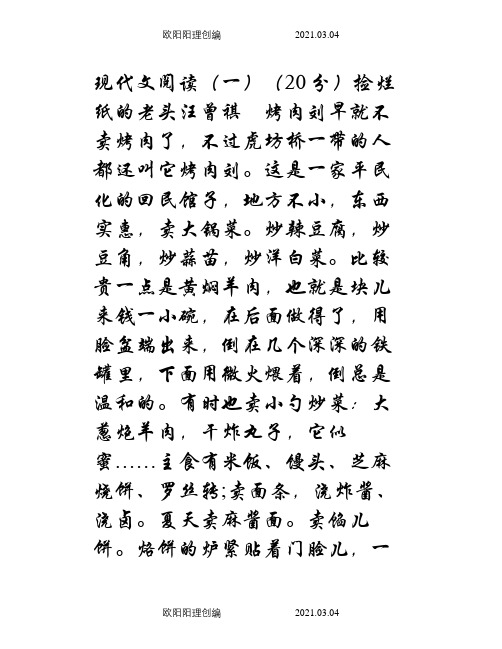 欧阳阳理创编 2021.03.04
现代文阅读（一）（20分）捡烂
纸的老头汪曾祺 烤肉刘早就不
卖烤肉了，不过虎坊桥一带的人
都还叫它烤肉刘。这是一家平民
化的回民馆子，地方不小，东西
实惠，卖大锅菜。炒辣豆腐，炒
豆角，炒蒜苗，炒洋白菜。比较
贵一点是黄焖羊肉，也就是块儿
来钱一小碗，在后面做得了，用
脸盆端出来，倒在几个深深的铁
罐里，下面用微火煨着，倒总是
温和的。有时也卖小勺炒菜：大
葱炮羊肉，干炸丸子，它似
蜜……主食有米饭、馒头、芝麻
烧饼、罗丝转;卖面条，浇炸酱、
浇卤。夏天卖麻酱面。卖馅儿
饼。烙饼的炉紧贴着门脸儿，一
欧阳阳理创编 2021.03.04